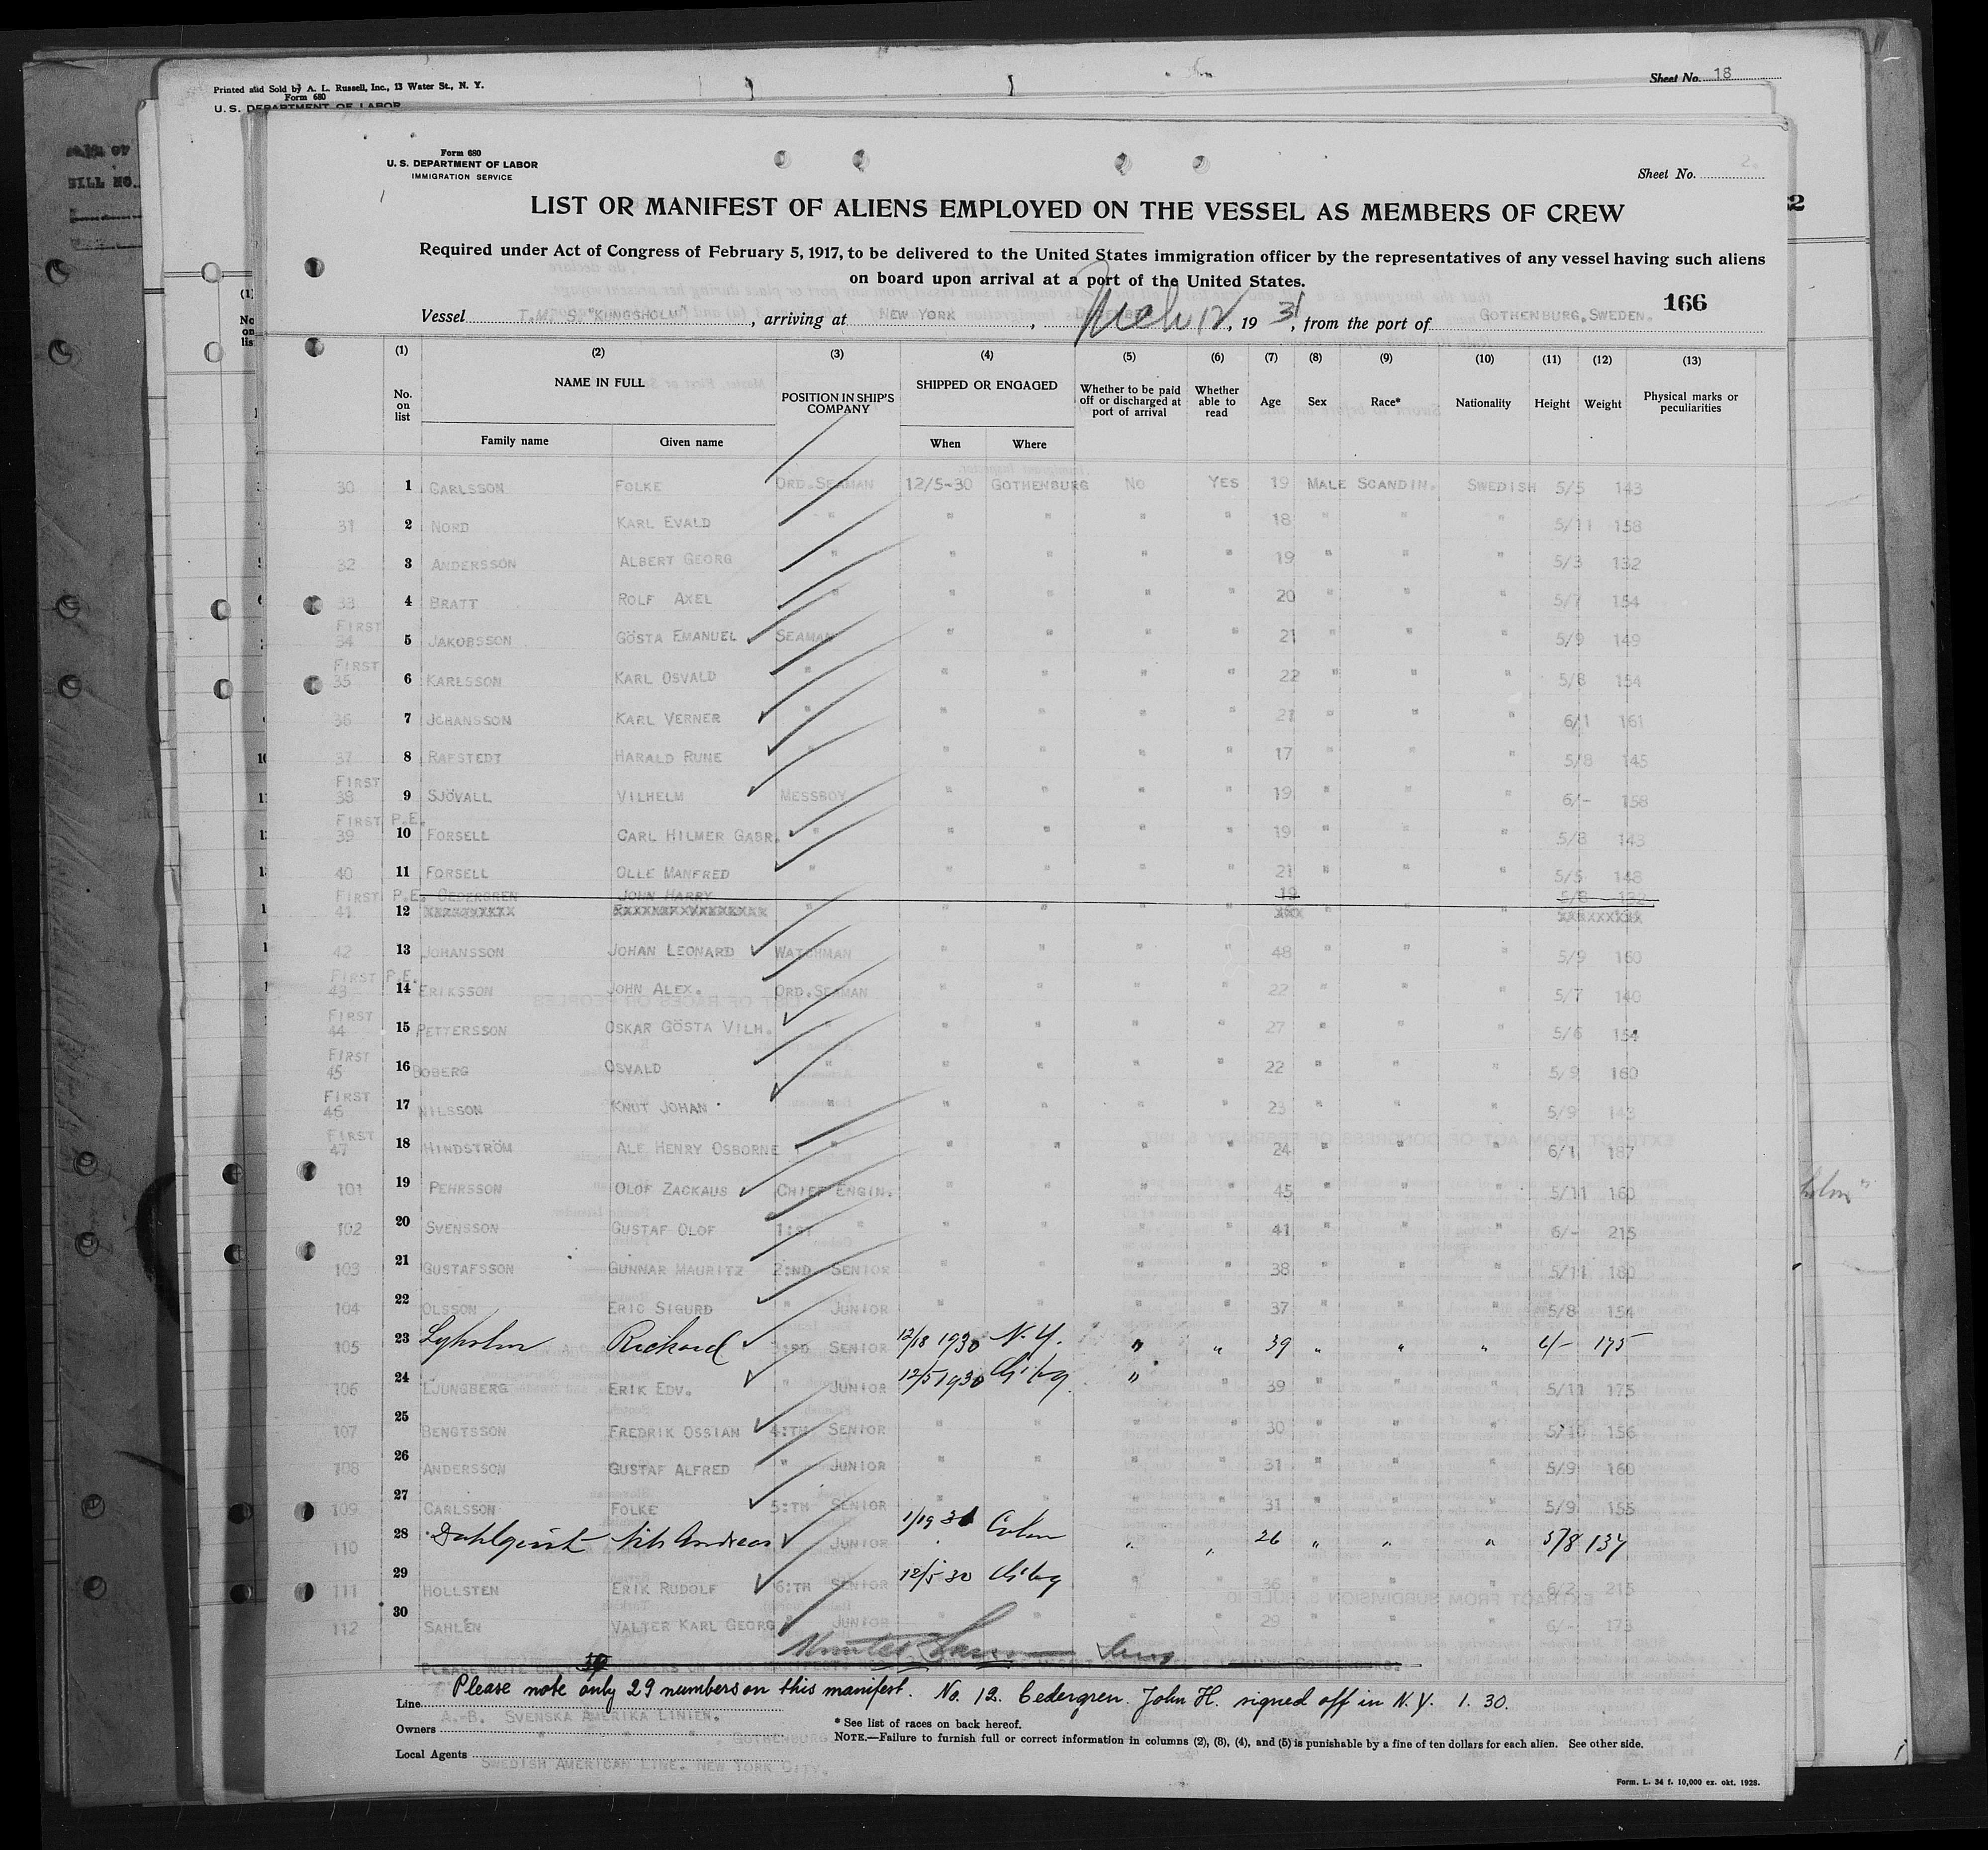 Printed and Sold by A. L. Russell, Inc., 13 Water St., N. Y.
Form 680
U. S. DEPARTMENT OF LABOR
Sheet No. 18
BILL NO.
Form 680
U. S. DEPARTMENT OF LABOR
IMMIGRATION SERVICE
Sheet No. 2.
LIST OR MANIFEST OF ALIENS EMPLOYED ON THE VESSEL AS MEMBERS OF CREW
Required under Act of Congress of February 5, 1917, to be delivered to the United States immigration officer by the representatives of any vessel having such aliens
on board upon arrival at a port of the United States.
166
Vessel T.M. S. "KUNGSHOLM", arriving at NEW YORK, Mch 12, 1931, from the port of GOTHENBURG, SWEDEN.
(1) (2) (3) (4) (5) (6) (7) (8) (9) (10) (11) (12) (13)
No. on list NAME IN FULL POSITION IN SHIP'S COMPANY SHIPPED OR ENGAGED Whether to be paid off or discharged at port of arrival Whether able to read Age Sex Race* Nationality Height Weight Physical marks or peculiarities
Family name Given name When Where
30 1 CARLSSON FOLKE ORD. SEAMAN 12/5-30 GOTHENBURG NO YES 19 MALE SCANDIN. SWEDISH 5/5 143
31 2 NORD KARL EVALD " " " " " 18 " " " 5/11 158
32 3 ANDERSSON ALBERT GEORG " " " " " 19 " " " 5/3 132
33 4 BRATT ROLF AXEL " " " " " 20 " " " 5/7 154
FIRST
34 5 JAKOBSSON GÖSTA EMANUEL SEAMAN " " " " 21 " " " 5/9 149
FIRST
35 6 KARLSSON KARL OSVALD " " " " " 22 " " " 5/8 154
36 7 JOHANSSON KARL VERNER " " " " " 21 " " " 6/1 161
37 8 RAFSTEDT HARALD RUNE " " " " " 17 " " " 5/8 145
FIRST
38 9 SJÖVALL VILHELM MESSBOY " " " " 19 " " " 6/- 158
FIRST P.E.
39 10 FORSELL CARL HILMER GABR. " " " " " 19 " " " 5/8 143
40 11 FORSELL OLLE MANFRED " " " " " 21 " " " 5/5 148
FIRST P.E. CEDERGREN JOHN HARRY 19 5/8 132
41 12 " " " " " " " "
42 13 JOHANSSON JOHAN LEONARD WATCHMAN " " " " 48 " " " 5/9 160
FIRST P.E.
43 14 ERIKSSON JOHN ALEX. ORD. SEAMAN " " " " 22 " " " 5/7 140
FIRST
44 15 PETTERSSON OSKAR GÖSTA VILH. " " " " " 27 " " " 5/6 154
FIRST
45 16 BOBERG OSVALD " " " " " 22 " " " 5/9 160
FIRST
46 17 NILSSON KNUT JOHAN " " " " " 23 " " " 5/9 143
FIRST
47 18 HINDSTRÖM ALF HENRY OSBORNE " " " " " 24 " " " 6/1 187
101 19 PEHRSSON OLOF ZACKAUS CHIEF ENGIN. " " " " 45 " " " 5/11 160
102 20 SVENSSON GUSTAF OLOF 1:ST " " " " " 41 " " " 6/- 215
103 21 GUSTAFSSON GUNNAR MAURITZ 2:ND SENIOR " " " " 38 " " " 5/11 180
104 22 OLSSON ERIC SIGURD " JUNIOR " " " " 37 " " " 5/8 154
105 23 Lyholm Rickard 3:RD SENIOR 12/18 1930 N. Y. " " 39 " " " 6/- 175
106 24 LJUNGBERG ERIK EDV. " JUNIOR 12/5 1930 Gtbg " " 39 " " " 5/11 175
107 25 BENGTSSON FREDRIK OSSIAN 4:TH SENIOR " " " " 30 " " " 5/10 156
108 26 ANDERSSON GUSTAF ALFRED " JUNIOR " " " " 31 " " " 5/9 160
109 27 CARLSSON FOLKE 5:TH SENIOR " " " " 31 " " " 5/9 155
110 28 Dahlqvist Nils Andreas JUNIOR 1/19 31 " " 26 " " " 5/8 137
111 29 HOLLSTEN ERIK RUDOLF 6:TH SENIOR 12/5 30 Gtbg " " 36 " " " 6/2 215
112 30 SAHLÉN VALTER KARL GEORG " JUNIOR " " " " 29 " " " 6/- 173
Please note only 29 numbers on this manifest. No. 12. Cedergren. John H. signed off in N. Y. 1. 30.
Line A.-B. SVENSKA AMERIKA LINIEN.
Owners " " " , GOTHENBURG.
Local Agents SWEDISH AMERICAN LINE. NEW YORK CITY.
* See list of races on back hereof.
NOTE.—Failure to furnish full or correct information in columns (2), (3), (4), and (5) is punishable by a fine of ten dollars for each alien. See other side.
Form. L. 34 f. 10,000 ex. okt. 1928.